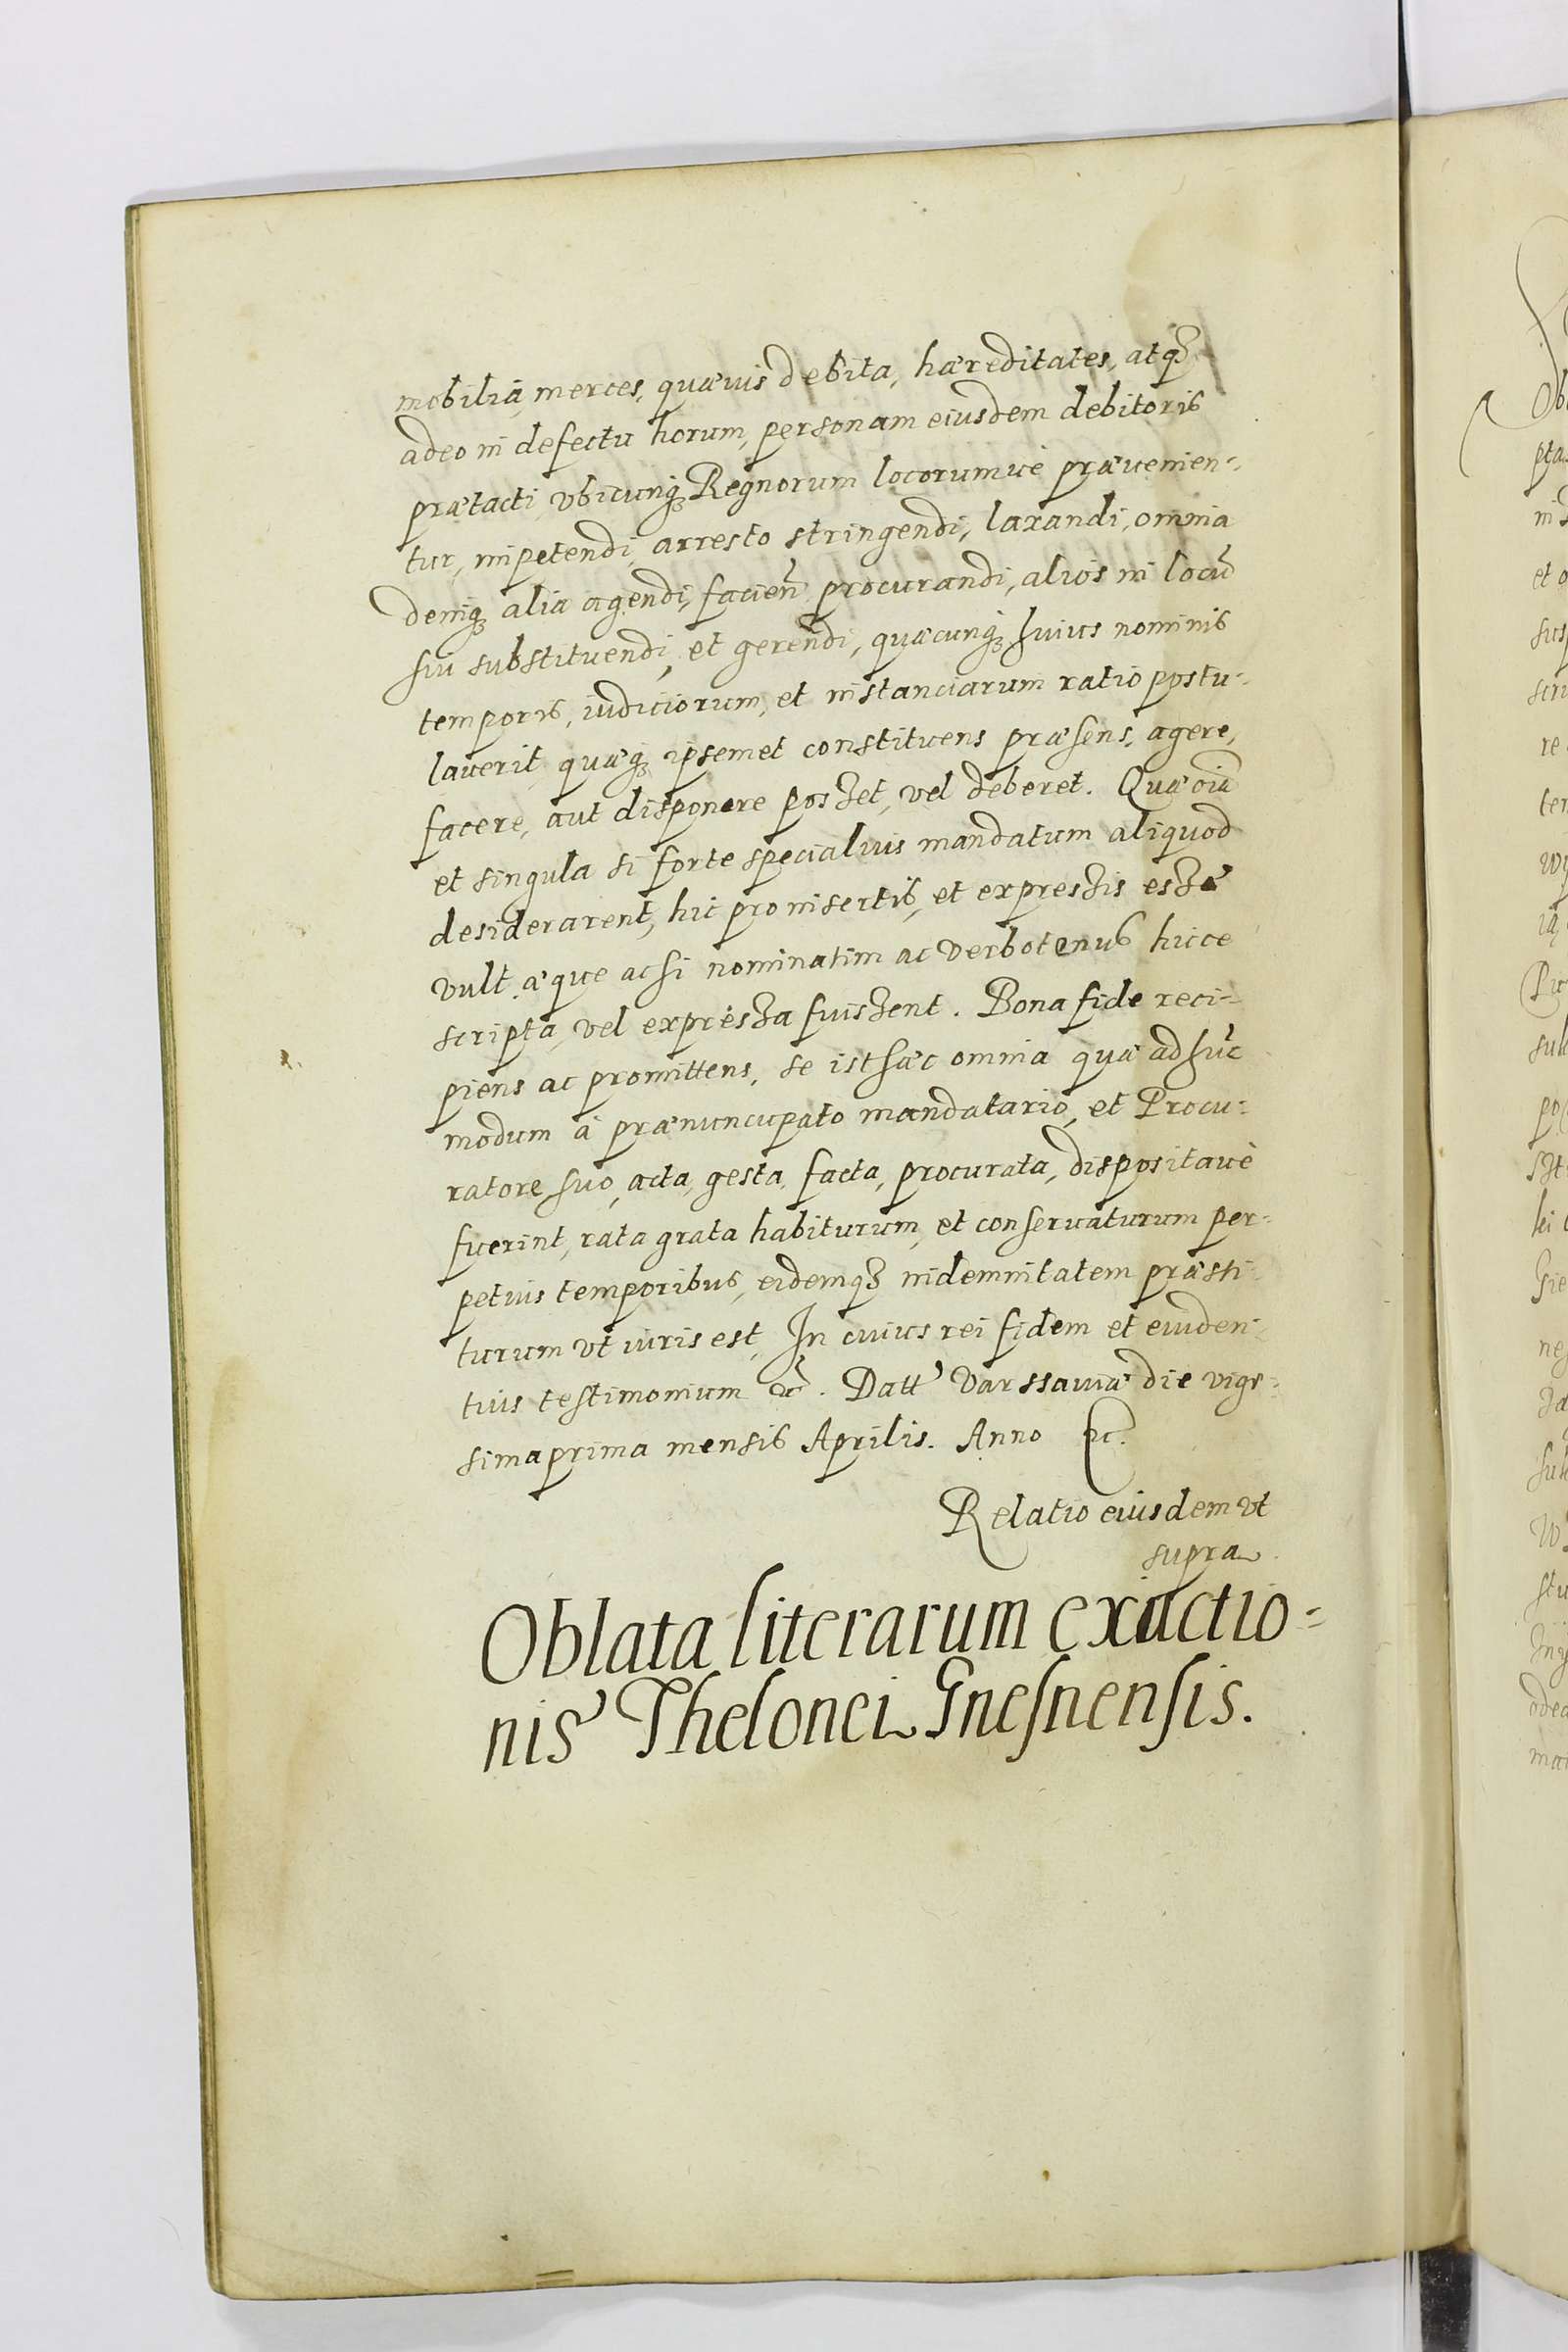 mobilia, merces, quævis debita, hæreditates, atq₃
adeo in defectu horum, personam eiusdem debitoris
prætacti, vbicunq₃ Regnorum locorumuè præuenien=
tur, impetendi, arresto stringendi, laxandi, omnia
deniq₃ alia agendi, facien̄ procurandi, alios in locū
sui substituendi, et gerendi, quæcunq₃ huius nominis
temporis, iudiciorum, et instanciarum ratio postu=
lauerit, quæq₃ ipsemet constituens præsens, agere,
facere, aut disponere posset, vel deberet. Quæ oīa
et singula si forte specialius mandatum aliquod
desiderarent, hic pro insertis, et expressis esse
vult, æque ac si nominatim ac verbotenus hicce
scripta, vel expressa fuissent. Bona fide reci=
piens ac promittens, se isthæc omnia quæ ad hūc
modum à prænuncupato mandatario, et Procu=
ratore, suo, acta, gesta, facta, procurata, dispositauè
fuerint, rata grata habiturum, et conseruaturum per=
petuis temporibus, eidemq₃ indemnitatem præsti=
turum vt iuris est, In cuius rei fidem et euiden=
tius testimonium &c. Datt Varssauiæ die vige=
sima prima mensis Aprilis. Anno &c.
Relatio eiusdem vt
supra
Oblata literarum exactio=
nis Thelonei Gnesnensis.